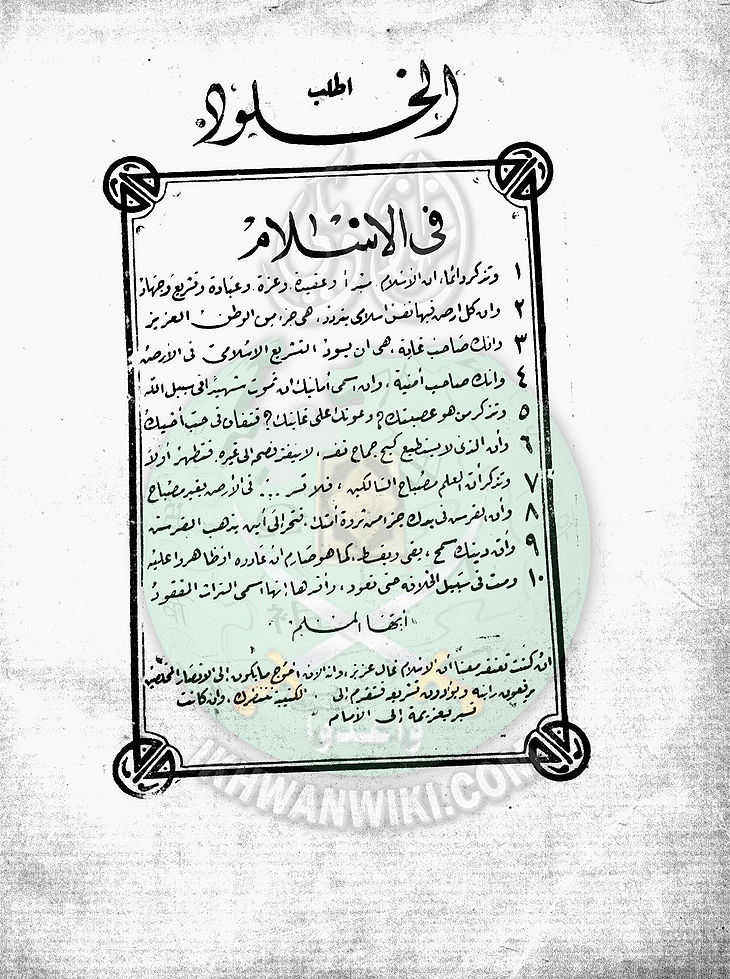 اطلب
الخلود
فى الاسلام
١ وتذكر دائما، ان الاسلام مبدأ وعقيدة، وعزة، وعبادة وتشريع وجهاد
٢ وان كل ارض فيها نفس اسلامى يتردد، هى جزء من الوطن العزيز
٣ وانك صاحب غاية، هى ان يسود التشريع الاسلامى فى الارض
٤ وانك صاحب أمنية، وان اسمى أمانيك ان تموت شهيدا فى سبيل الله
٥ وتذكر من هو عصبيتك؟ وعونك على غايتك؟ فتفان فى حب أخيك
٦ وأن الذى لا يستطيع كبح جماح نفسه، لا يتقدم الى غيره، فتطهر أولا
٧ وتذكر أن العلم مصباح السالكين، فلا تسر ... فى الأرض بغير مصباح
٨ وأن القرش فى يدك جزء من ثروة أمتك، فتحر إلى أين يذهب القرش
٩ وأن دينك سمح، بقى وبقسط، كما هو صارم ان عادوه او ظاهروا عليه
١٠ ومت فى سبيل الخلافة حتى تعود، وأقدرها إنها اسمى التراث المفقود
أيها المسلم
ان كنت تعتقد معنا أن الاسلام غال عزيز، وانه الان احوج ما يكون إلى الانصار المخلصين
يرفعون رايته ويؤازرون تشريعه فتقدم إلى الكتيبة تنتظرك، وان كانت
تسير بعزيمة إلى الأمام
وأعدوا
IKHWANWIKI.COM